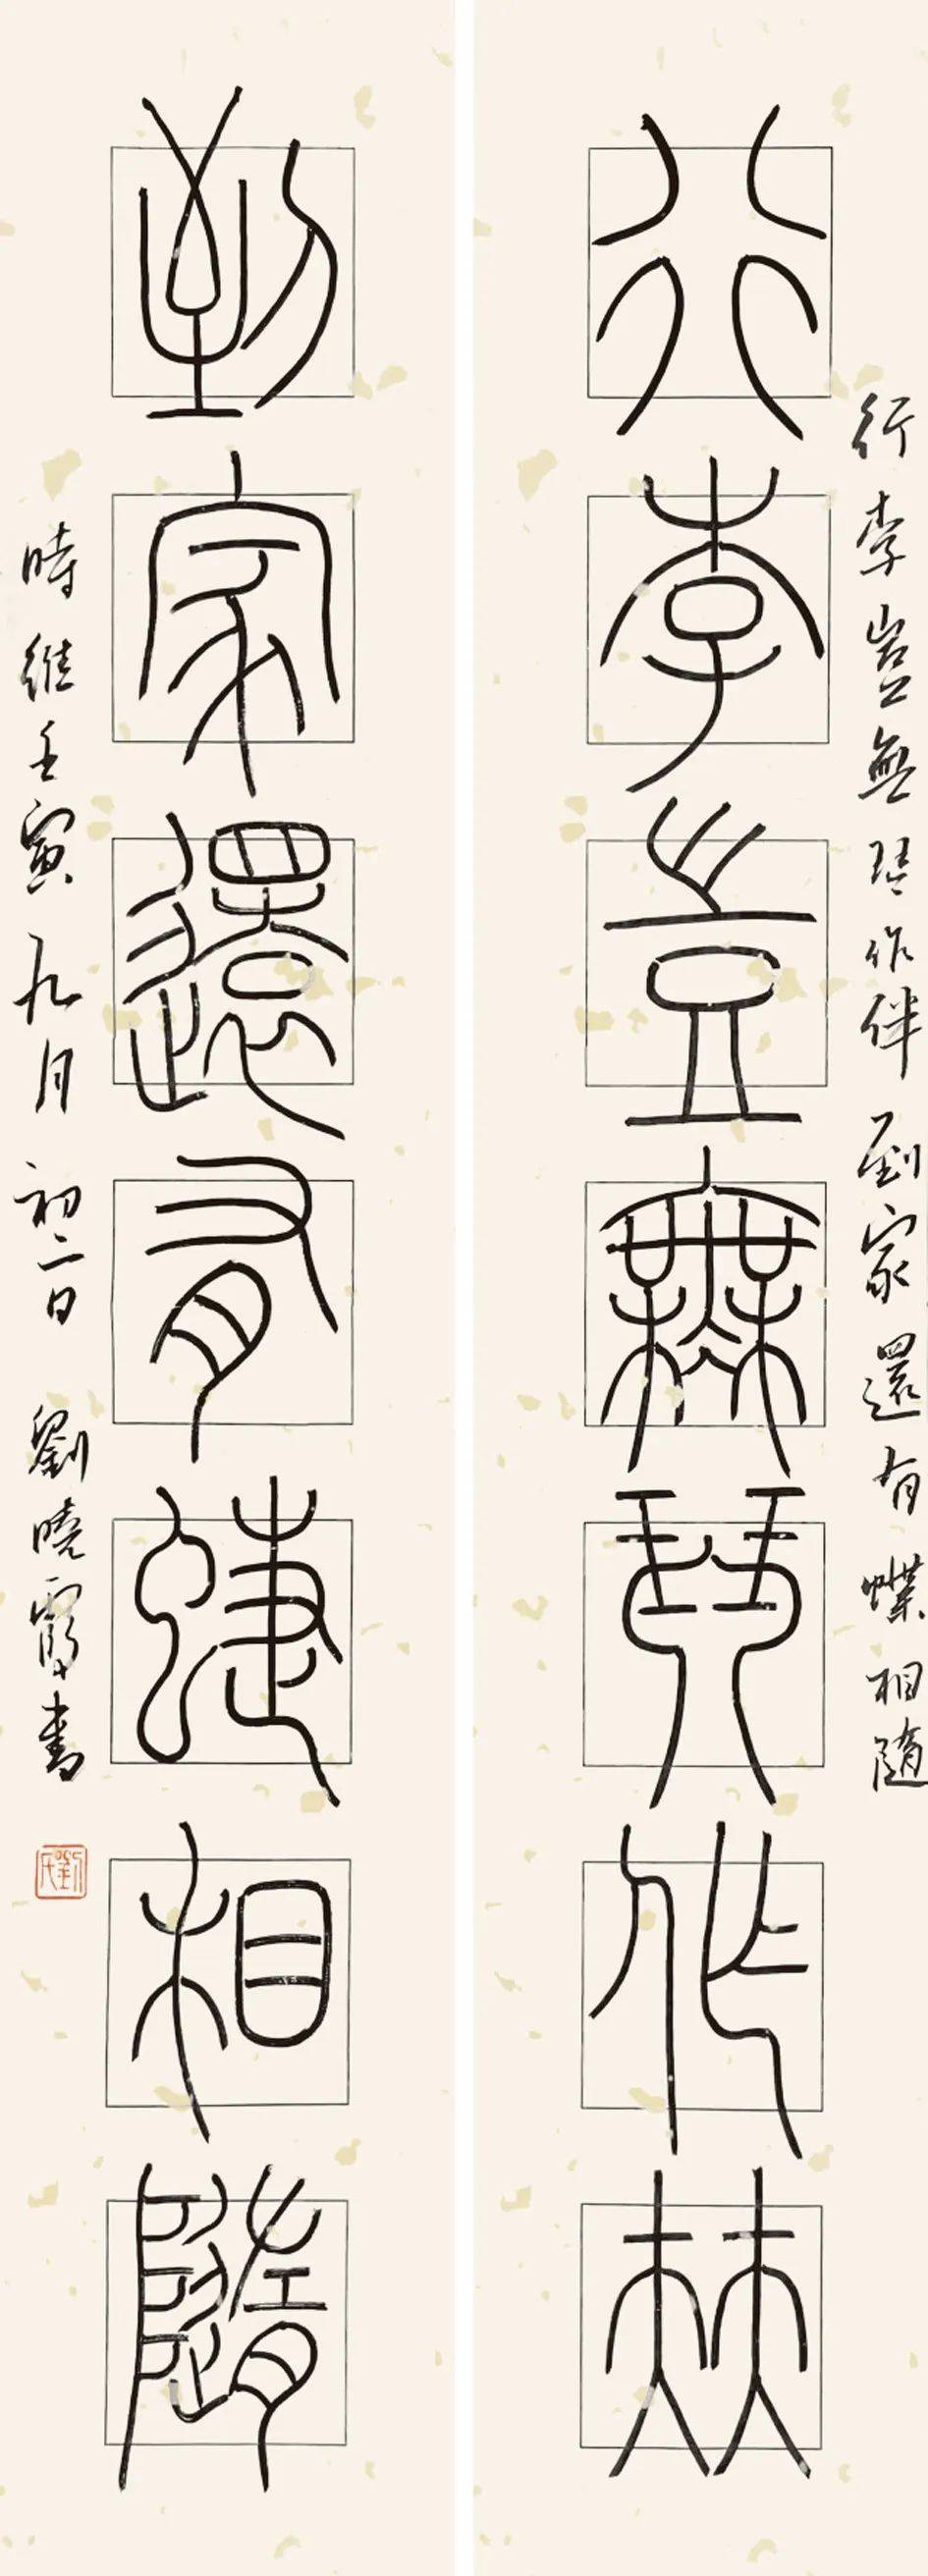 行李豈無琴作伴 到家還有蝶相隨
行李豈無琴作㚘
到家還有蜨相隨
時維壬寅九月初二日 劉曉霞書
劉氏